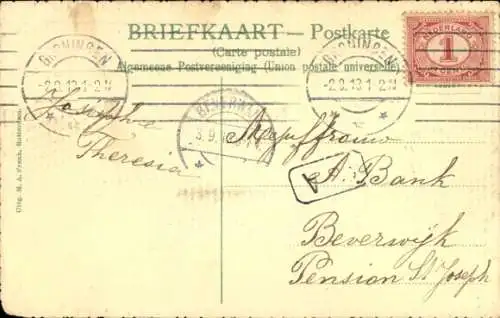 BRIEFKAART — Postkarte
(Carte postale)
Algemeene Postvereeniging (Union postale universelle)
NEDERLAND
1
CENT
GRONINGEN
2.9.13.1-2.N
GRONINGEN
2.9.13.1-2.N
BEVERWIJK
3.9.
Josephia
Theresia
Mejuffrouw
A. Bank
A
Beverwijk
Pension St Joseph
Uitg. M. A. Frank, Rotterdam